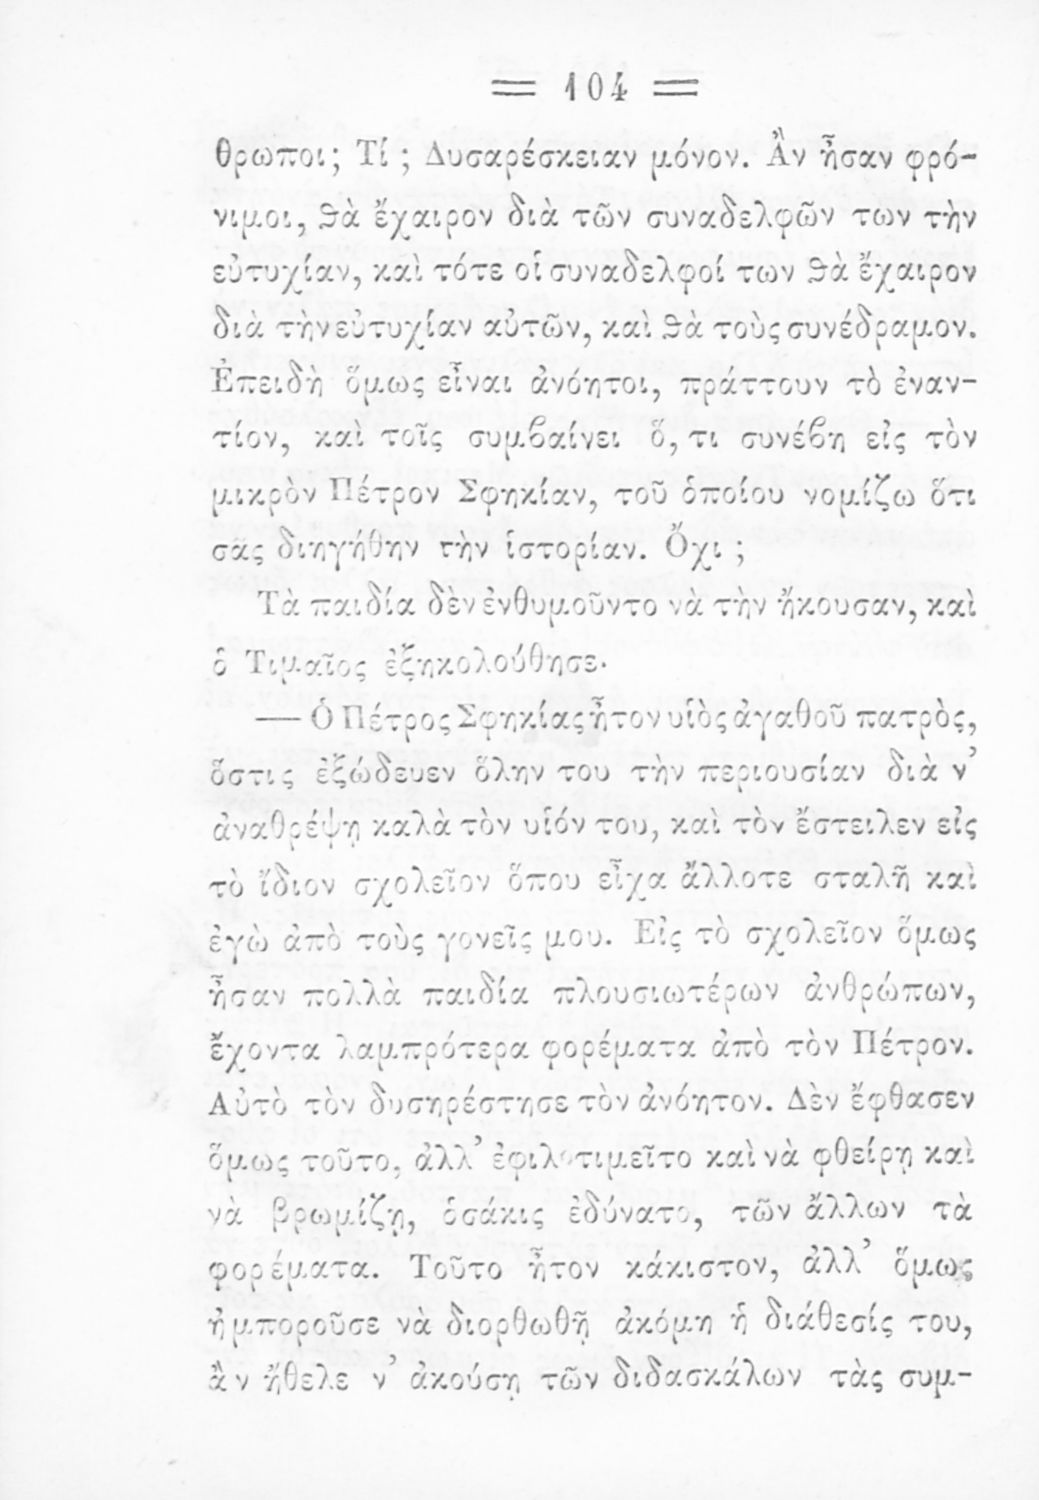 = 104 =
θρωποι; Τί ; Δυσαρέσκειαν μόνον. Ἂν ἦσαν φρό-
νιμοι, θὰ ἔχαιρον διὰ τῶν συναδελφῶν των τὴν
εὐτυχίαν, καὶ τότε οἱ συναδελφοί των θὰ ἔχαιρον
διὰ τὴν εὐτυχίαν αὐτῶν, καὶ θὰ τοὺς συνέδραμον.
Ἐπειδὴ ὅμως εἶναι ἀνόητοι, πράττουν τὸ ἐναν-
τίον, καὶ τοῖς συμβαίνει ὅ,τι συνέβη εἰς τὸν
μικρὸν Πέτρον Σφηκίαν, τοῦ ὁποίου νομίζω ὅτι
σᾶς διηγήθην τὴν ἱστορίαν. Ὄχι ;
Τὰ παιδία δὲν ἐνθυμοῦντο νὰ τὴν ἤκουσαν, καὶ
ὁ Τιμαῖος ἐξηκολούθησε·
— Ὁ Πέτρος Σφηκίας ἦτον υἱὸς ἀγαθοῦ πατρὸς,
ὅστις ἐξώδευεν ὅλην του τὴν περιουσίαν διὰ ν’
ἀναθρέψῃ καλὰ τὸν υἱόν του, καὶ τὸν ἔστειλεν εἰς
τὸ ἴδιον σχολεῖον ὅπου εἶχα ἄλλοτε σταλῆ καὶ
ἐγὼ ἀπὸ τοὺς γονεῖς μου. Εἰς τὸ σχολεῖον ὅμως
ἦσαν πολλὰ παιδία πλουσιωτέρων ἀνθρώπων,
ἔχοντα λαμπρότερα φορέματα ἀπὸ τὸν Πέτρον.
Αὐτὸ τὸν δυσηρέστησε τὸν ἀνόητον. Δὲν ἔφθασεν
ὅμως τοῦτο, ἀλλ’ ἐφιλοτιμεῖτο καὶ νὰ φθείρῃ καὶ
νὰ βρωμίζῃ, ὁσάκις ἐδύνατο, τῶν ἄλλων τὰ
φορέματα. Τοῦτο ἦτον κάκιστον, ἀλλ’ ὅμως
ἠμποροῦσε νὰ διορθωθῇ ἀκόμη ἡ διάθεσίς του,
ἂν ἤθελε ν’ ἀκούσῃ τῶν διδασκάλων τὰς συμ-